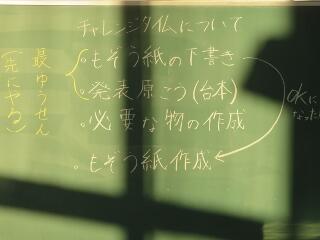 チャレンジタイムについて
最ゆうせん
(先にやる)
。もぞう紙の下書き
。発表原こう(台本)
。必要な物の作成
。もぞう紙作成
OKに
なった